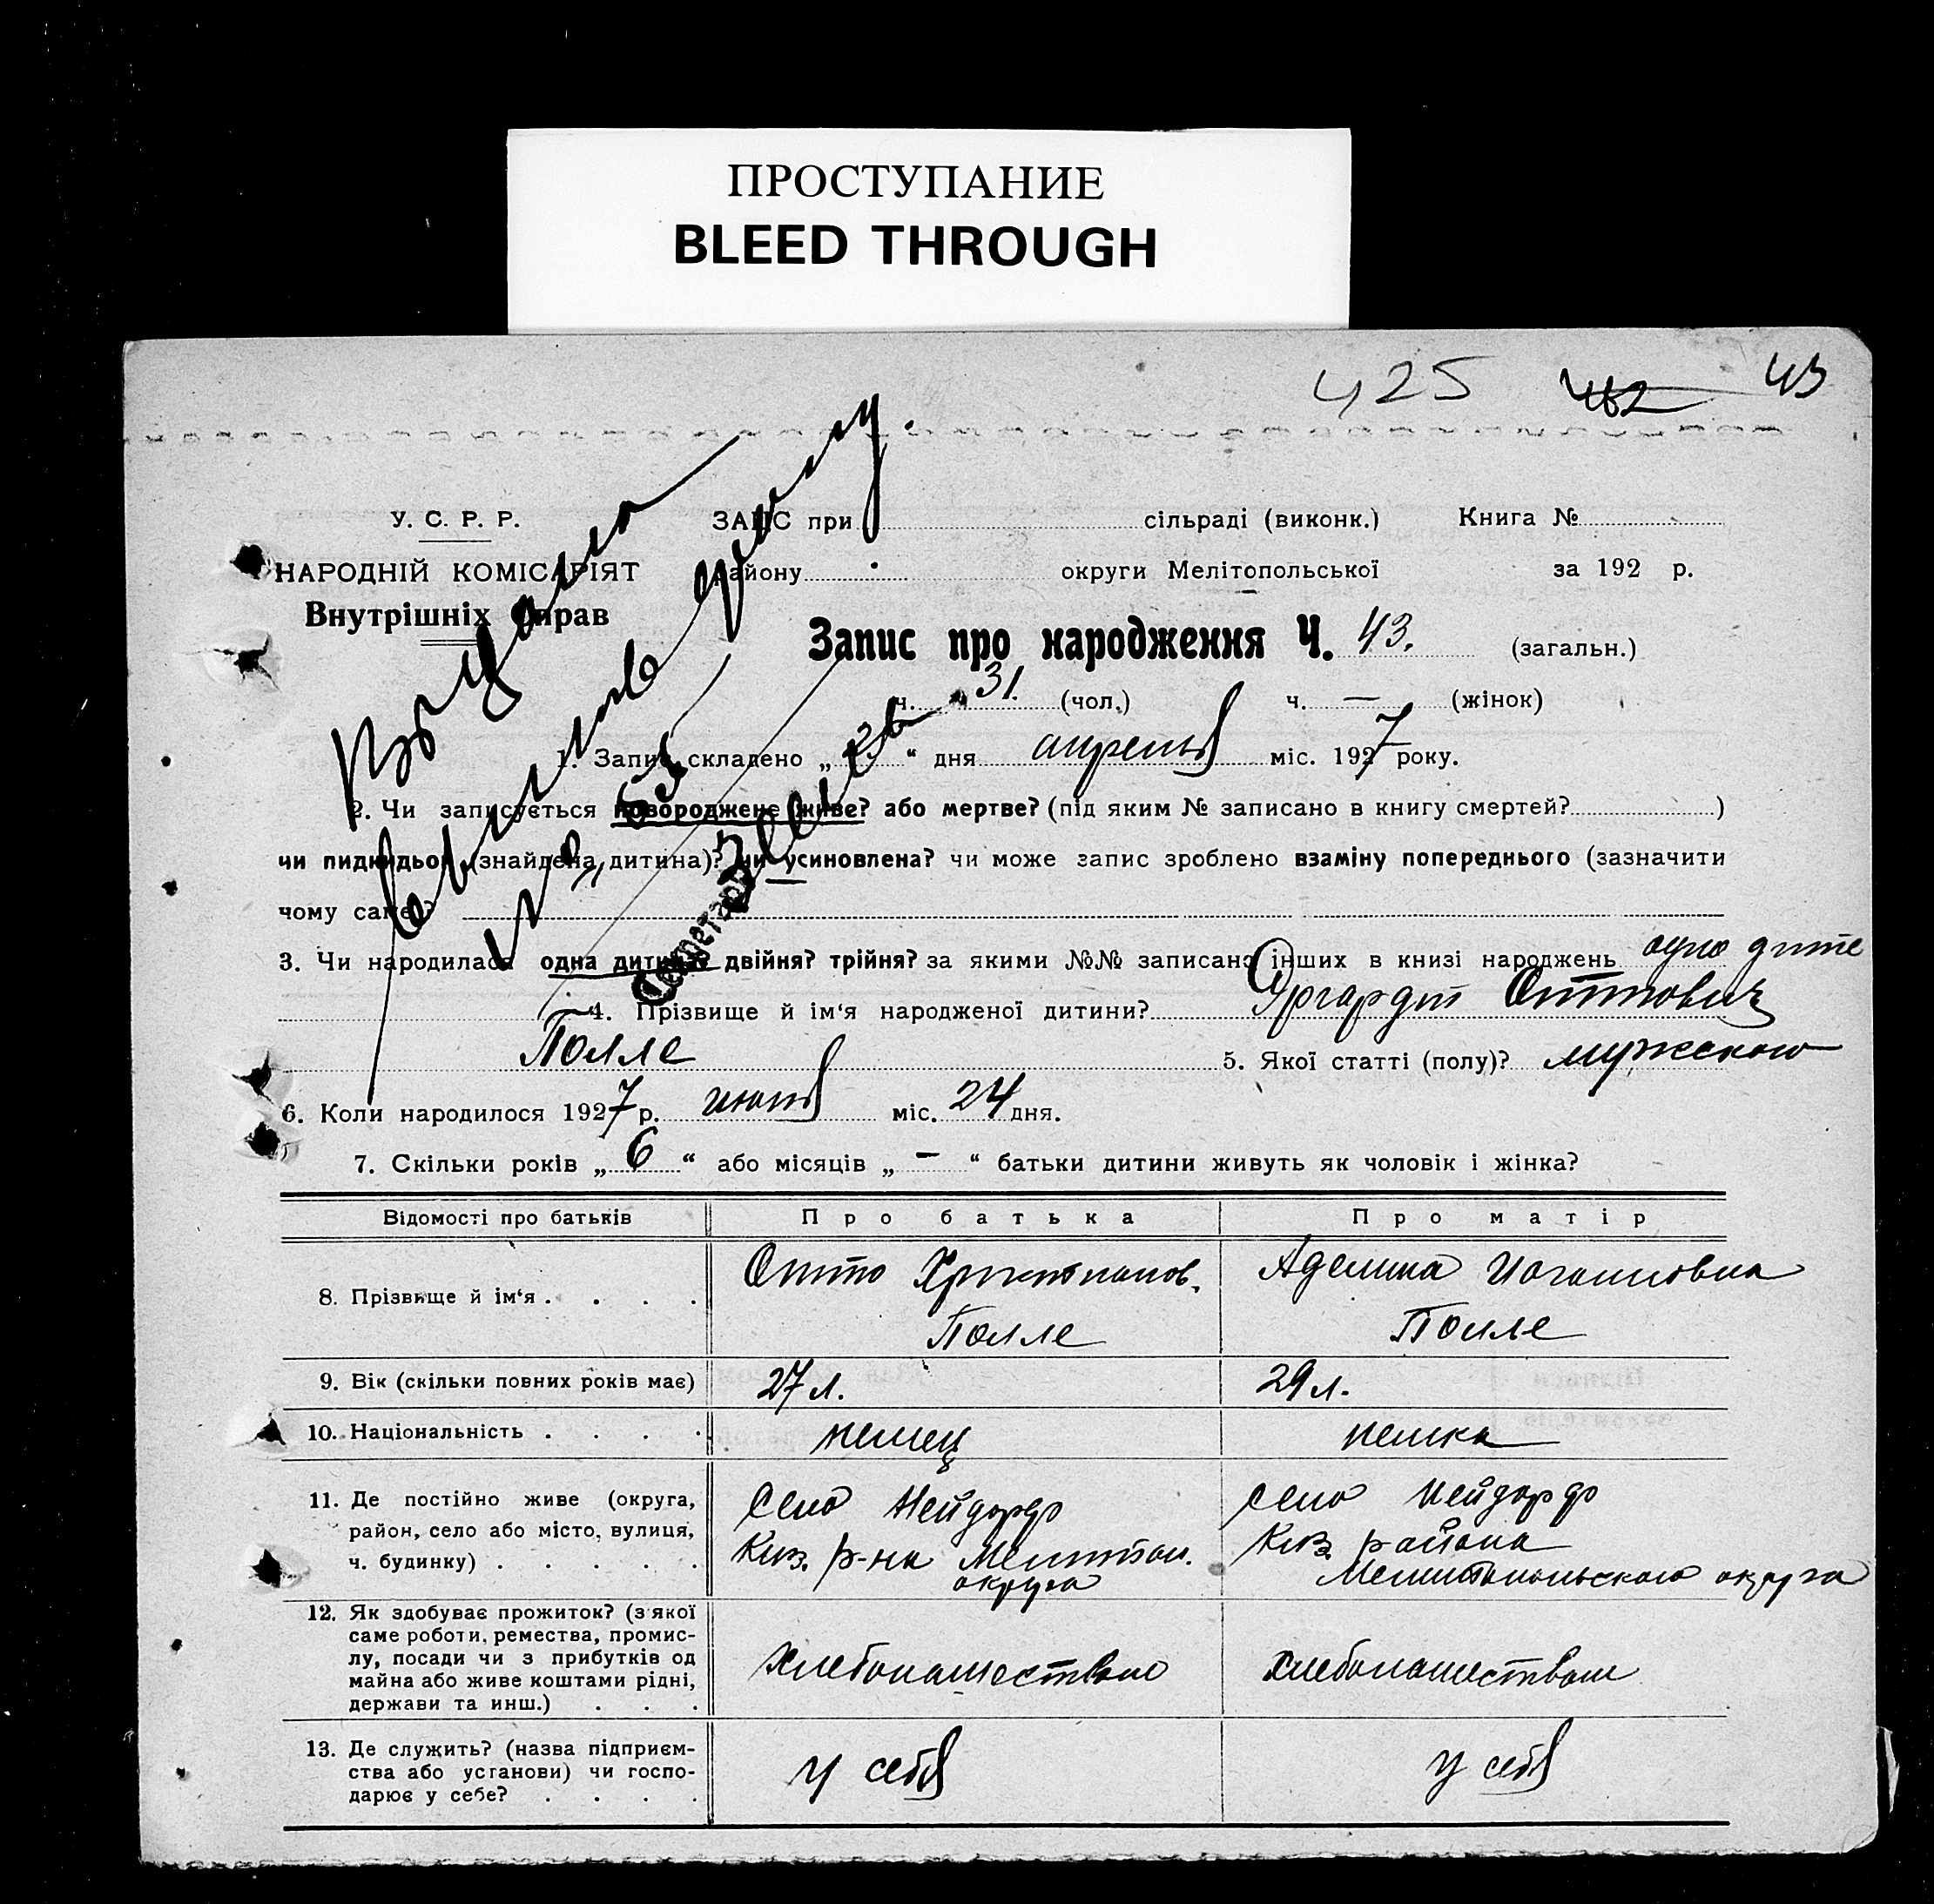 ПРОСТУПАНИЕ
BLEED THROUGH
425 482 43
У. С. Р. Р.
НАРОДНІЙ КОМІСАРІЯТ
Внутрішніх Справ
ЗАПС при сільраді (виконк.) Книга №
району округи Мелітопольської за 192 р.
Запис про народження Ч. 43. (загальн.)
ч. 31. (чол.) ч. — (жінок)
1. Запис складено „ “ дня апреля міс. 1927 року.
2. Чи записується новороджене живе? або мертве? (під яким № записано в книгу смертей? )
чи пидкидьок (знайдена дитина)? чи усиновлена? чи може запис зроблено взаміну попереднього (зазначити
чому саме)?
3. Чи народилася одна дитина? двійня? трійня? за якими №№ записано інших в книзі народжень одно дите
4. Прізвище й ім'я народженої дитини? Оттович
Полле 5. Якої статті (полу)? мужского
6. Коли народилося 1927 р. июня міс. 24 дня.
7. Скільки років „ 6 “ або місяців „ – “ батьки дитини живуть як чоловік і жінка?
Відомості про батьків Про батька Про матір
8. Прізвище й ім'я . . . . Отто Христианов. Полле Аделина Иогановна Полле
9. Вік (скільки повних років має) 27 л. 29 л.
10. Національність . . . . немец немка
11. Де постійно живе (округа,
район, село або місто, вулиця,
ч. будинку) . . . . .
село Нейдорф
р-на Мелитоп.
округа
село Нейдорф
района
Мелитопольского округа
12. Як здобуває прожиток? (з якої
саме роботи, ремества, промис-
лу, посади чи з прибутків од
майна або живе коштами рідні,
держави та инш.) . . .
хлебопашеством хлебопашеством
13. Де служить? (назва підприєм-
ства або установи) чи госпо-
дарює у себе? . . . .
у себя у себя
Секретарь